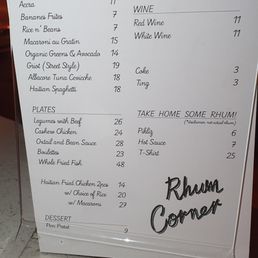 Accra 11
Bananes Frites 7
Rice n' Beans 7
Macaroni au Gratin 15
Organic Greens & Avocado 14
Griot (Street Style) 19
Albacore Tuna Ceviche 18
Haitian Spaghetti 18
PLATES
Legumes with Beef 26
Cashew Chicken 24
Oxtail and Bean Sauce 28
Boulettes 23
Whole Fried Fish 48
Haitian Fried Chicken 2pcs 14
w/ Choice of Rice 20
w/ Macaroni 27
DESSERT
Pen Patat 9
WINE
Red Wine 11
White Wine 11
Coke 3
Ting 3
TAKE HOME SOME RHUM!
Pikliz 6
Hot Sauce 7
T-Shirt 25
Rhum
Corner